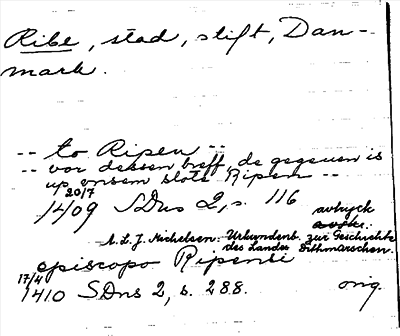 Ribe, stad, stift, Dan-
mark.
-- to Ripen --
-- vor dessen breff, de gegeuen is
up vnsem slote Ripen --
20/7
1409 SDns 2, s. 116 avtryck
A.L.J. Michelsen: Urkundenb. zur Geschichte
des Landes Dithmarschen.
episcopo Ripensi
17/4
1410 SDns 2, s. 288. orig.